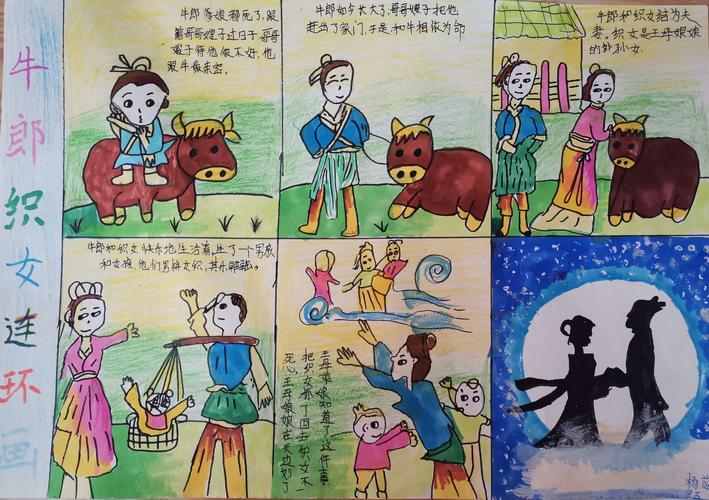 牛郎织女连环画
牛郎爹娘都死了,跟
着哥哥嫂子过日子,哥哥
嫂子待他很不好,他
跟牛最亲密。
牛郎如今长大了,哥哥嫂子把他
赶出了家门,于是和牛相依为命
牛郎和织女结为夫
妻。织女是王母娘娘
的外孙女。
牛郎和织女快乐地生活着,生了一个男孩
和女孩,他们男耕女织,其乐融融。
王母娘娘知道了这件事
把织女抓了回去织女不
死心,王母娘娘在天边划了
杨